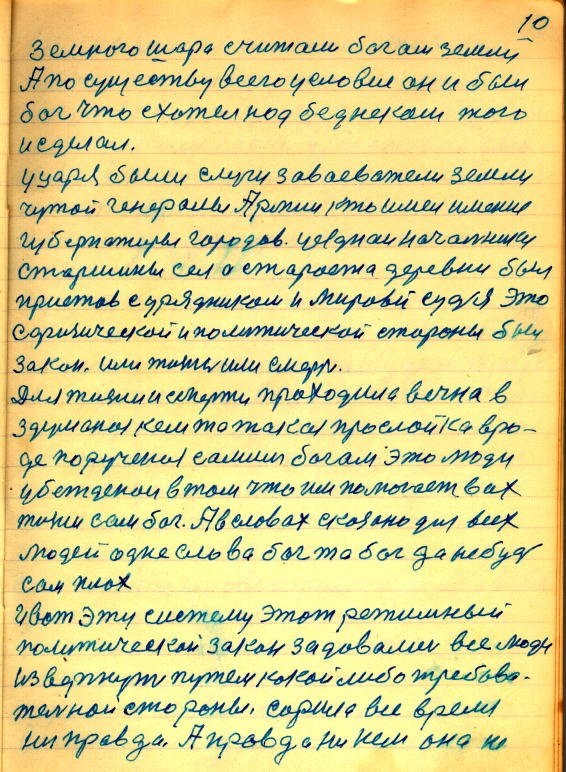 10
Земного шара считали богам земли
А по существу всего условие он и был
бог что схотел под беднеком того
и сделал.
у царя были слуги заваеватели земли
генералы Армии кто имел имение
губернаторы городов. уезднаи началники
старшины сел а староста деревни был
пристов с урядником и мировй судя Это
с физической и политической стороны был
закон. или жить или смерт.
Для жизни и смерти проходила вечна в
кем та такая прослойка вро-
де поручена самим богам Это люди
убежденои в том что им помогает в ах
жизни сам бог. А в словах сказано для всех
людей одне слова бог та бог да небуд
сам плох
И вот Эту систему Этот режимный
политический закон задавалис все люди
извергнут путем какой либо требова-
телной стороны. сорила все время
ни правда. А правда ни кем она не